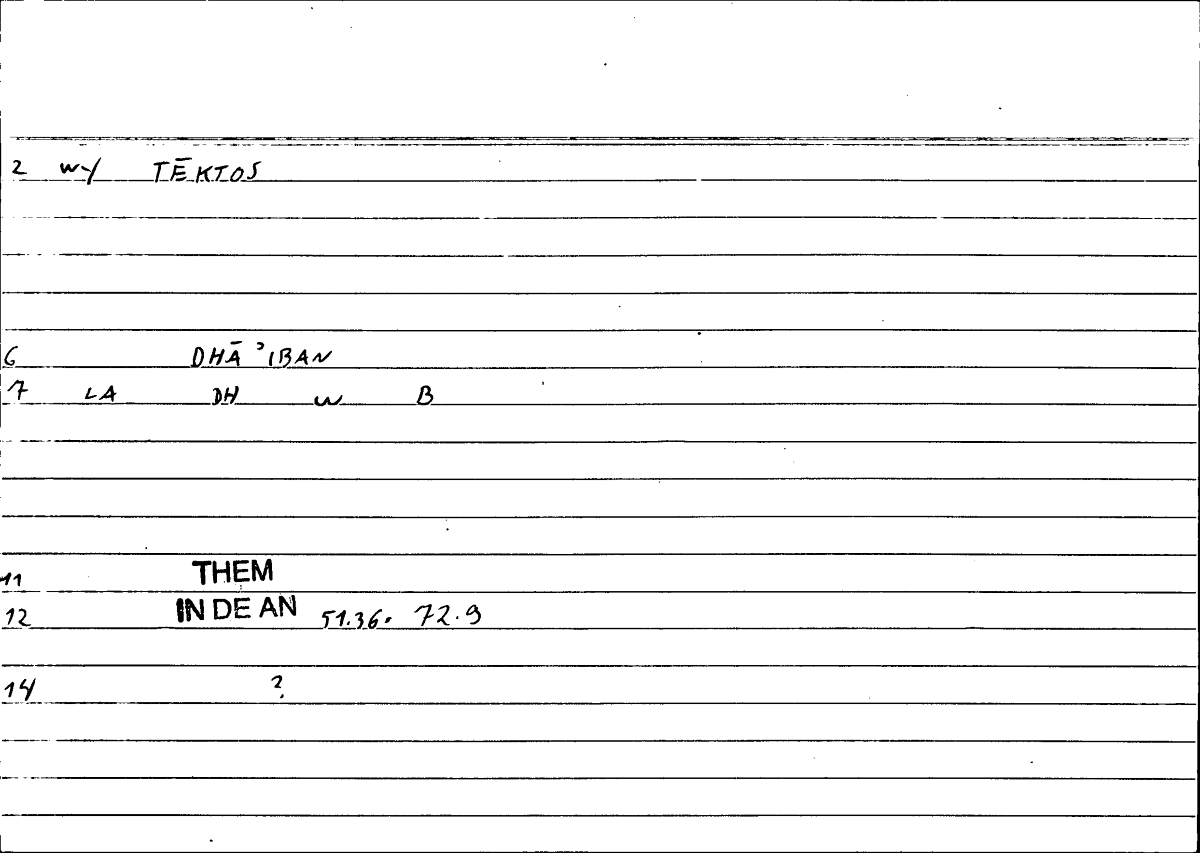 2 wy TĒKTOS
6 DHĀʾIBAN
7 LA DH W B
11 THEM
12 IN DE AN 51.36. 72.9
14 ?